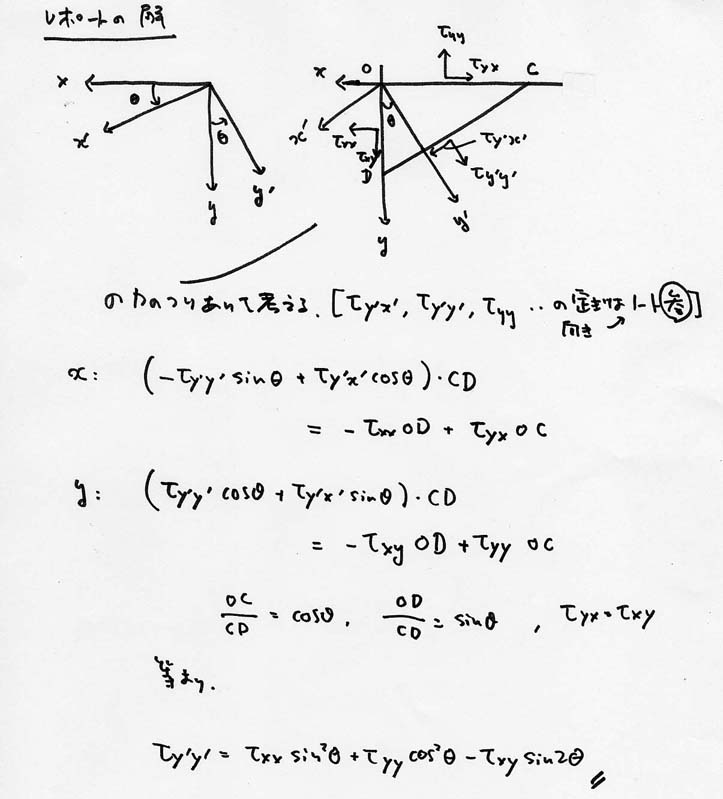 レポートの解
x
θ
x'
θ
y
y'
x
O
τyy
τyx
C
x'
τxx
τxy
θ
D
τy'x'
τy'y'
y
y'
の力のつりあいで考える. [τy'x', τy'y', τyy ‥の定義は ノート参]
向き
x: (-τy'y' sinθ + τy'x' cosθ)・CD
= -τxx OD + τyx OC
y: (τy'y' cosθ + τy'x' sinθ)・CD
= -τxy OD + τyy OC
OC/CD = cosθ, OD/CD = sinθ, τyx = τxy
等より.
τy'y' = τxx sin²θ + τyy cos²θ - τxy sin2θ